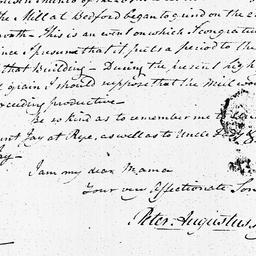 the Mill at Bedford began to grind on the
This is an event on which I congratu
since I presume that it puts a period to the
that Building - During the present high
grain I should suppose that the Mill wou
ceeding productive -
Be so kind as to remember me to
unt Jay at Rye, as well as to Uncle
Jay -
I am my dear Mama
Your very affectionate Son
Peter Augustus